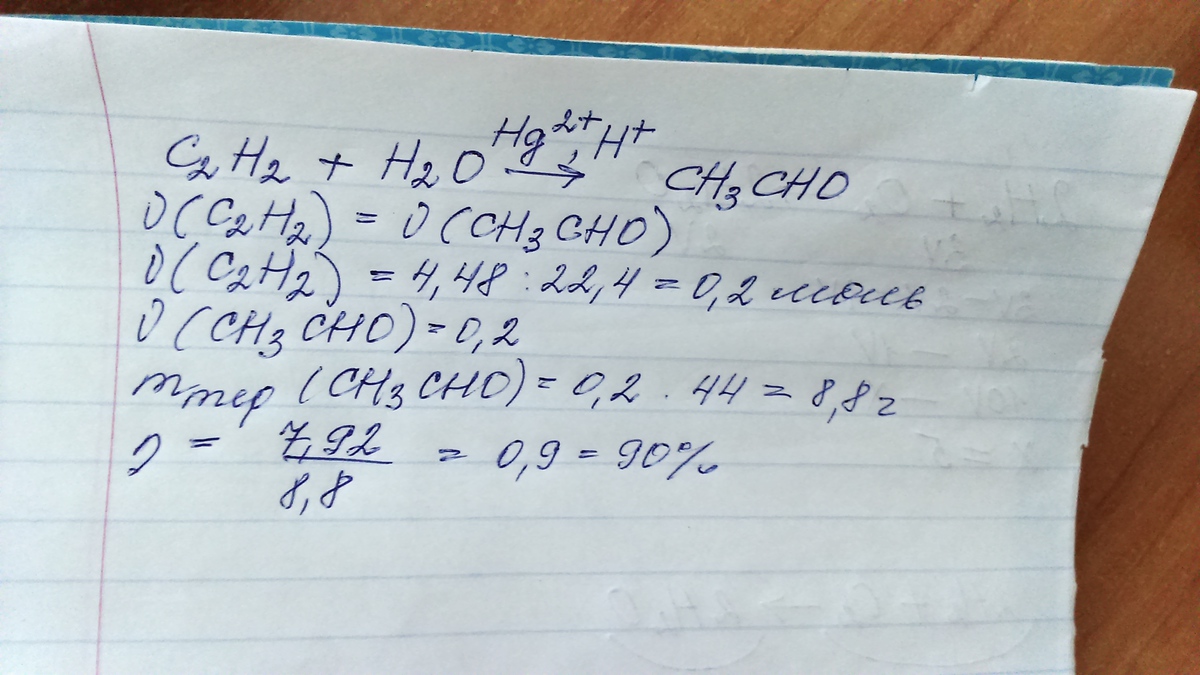 C₂H₂ + H₂O Hg²⁺, H⁺ → CH₃CHO
ν(C₂H₂) = ν(CH₃CHO)
ν(C₂H₂) = 4,48 : 22,4 = 0,2 моль
ν(CH₃CHO) = 0,2
mтер (CH₃CHO) = 0,2 · 44 = 8,8 г
η = 7,92 / 8,8 = 0,9 = 90%